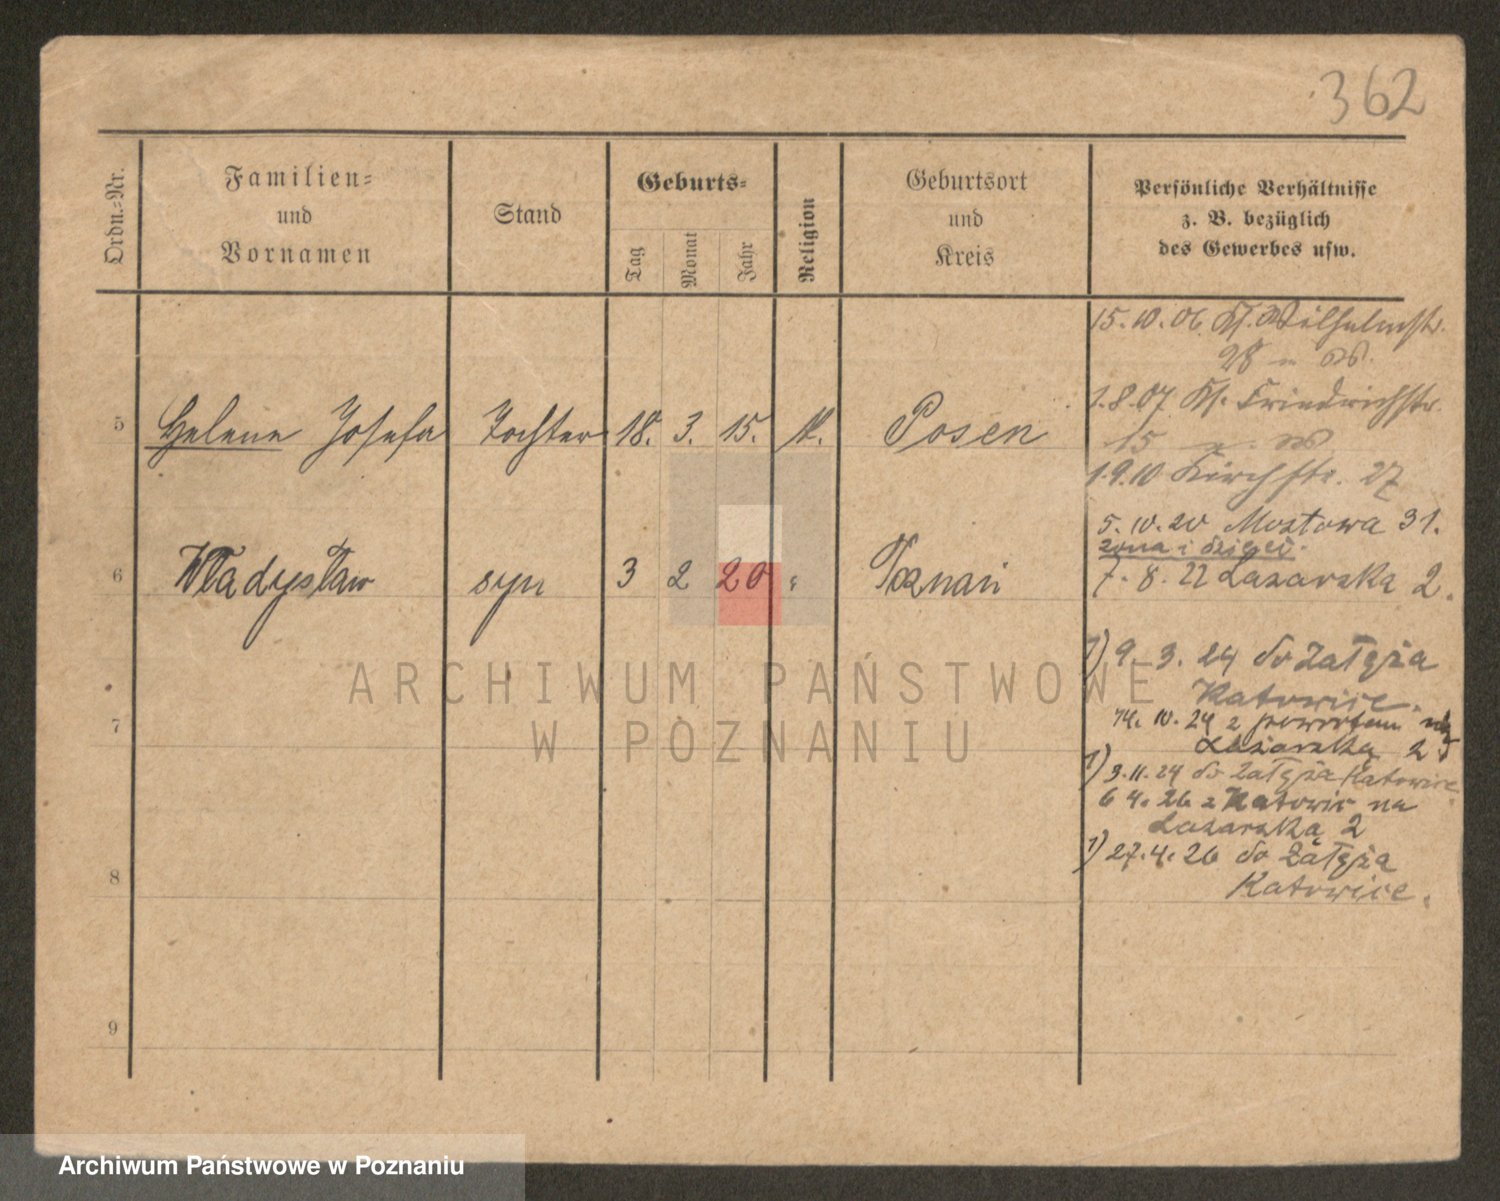 362
Ordn.-Nr.
Familien-
und
Vornamen
Stand
Geburts-
Tag
Monat
Jahr
Religion
Geburtsort
und
Kreis
Persönliche Verhältnisse
z. B. bezüglich
des Gewerbes usw.
15.10.06 Kl. Wilhelmstr.
28 n W.
1.8.07 Kl. Friedrichstr.
15 W
1.9.10 Kirchstr. 27
5 Helene Josefa Tochter 18. 3. 15. k. Posen
5.10.20 Mostowa 31.
żona i dzieci.
6 Władysław syn 3 2 20 " Poznań
7.8.22 Łazarska 2.
1) 9.3.24 do Załęża
Katowice.
7
14.10.24 z powrotem na
Łazarską 25
1) 3.11.24 do Załęża Katowice
6 4.26 z Katowic na
Łazarską 2
1) 27.4.26 do Załęża
Katowice.
8
9
ARCHIWUM PAŃSTWOWE
W POZNANIU
Archiwum Państwowe w Poznaniu